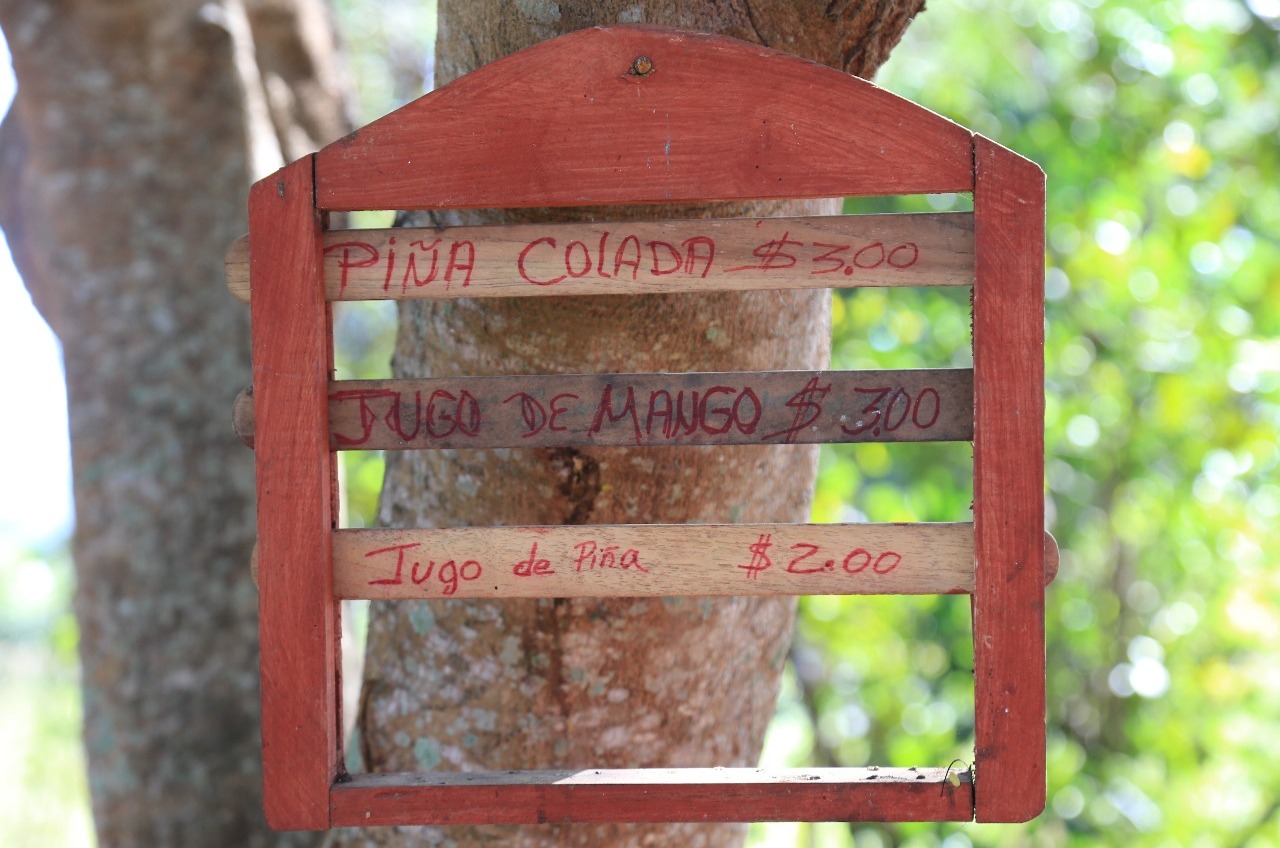 PIÑA COLADA $3.00
JUGO DE MANGO $ 3.00
Jugo de Piña $2.00